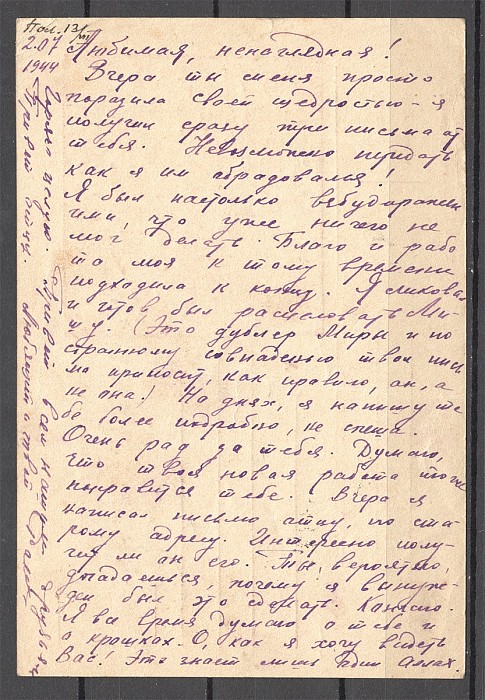 Пол. 13/VII
2.07
1944
Любимая, ненаглядная!
Вчера ты меня просто
поразила своей щедростью - я
получил сразу три письма от
тебя. Невозможно передать
как я им обрадовался!
Я был настолько взбудоражен
ими, что уже ничего не
мог делать. Благо и рабо
та моя к тому времени
подходила к концу. Я ликовал
и готов был расцеловать Ми-
шу. (Это дублер Миры и по
странному совпадению твои пись
ма приносит, как правило, он, а
не она. На днях, я напишу те
бе более подробно, не спеша.
Очень рад за тебя. Думаю,
что твоя новая работа
понравится тебе. Вчера я
написал письмо отцу, по ста
рому адресу. Интересно полу-
чит ли он его. Ты, вероятно,
догадаешься почему я вынуж-
ден был это сделать.
Я все время думаю о тебе и
о крошках. О, как я хочу видеть
Вас! Это знает лишь один Аллах.
Горячо целую. Привет всем нашим друзьям
Привет Любящий тебя